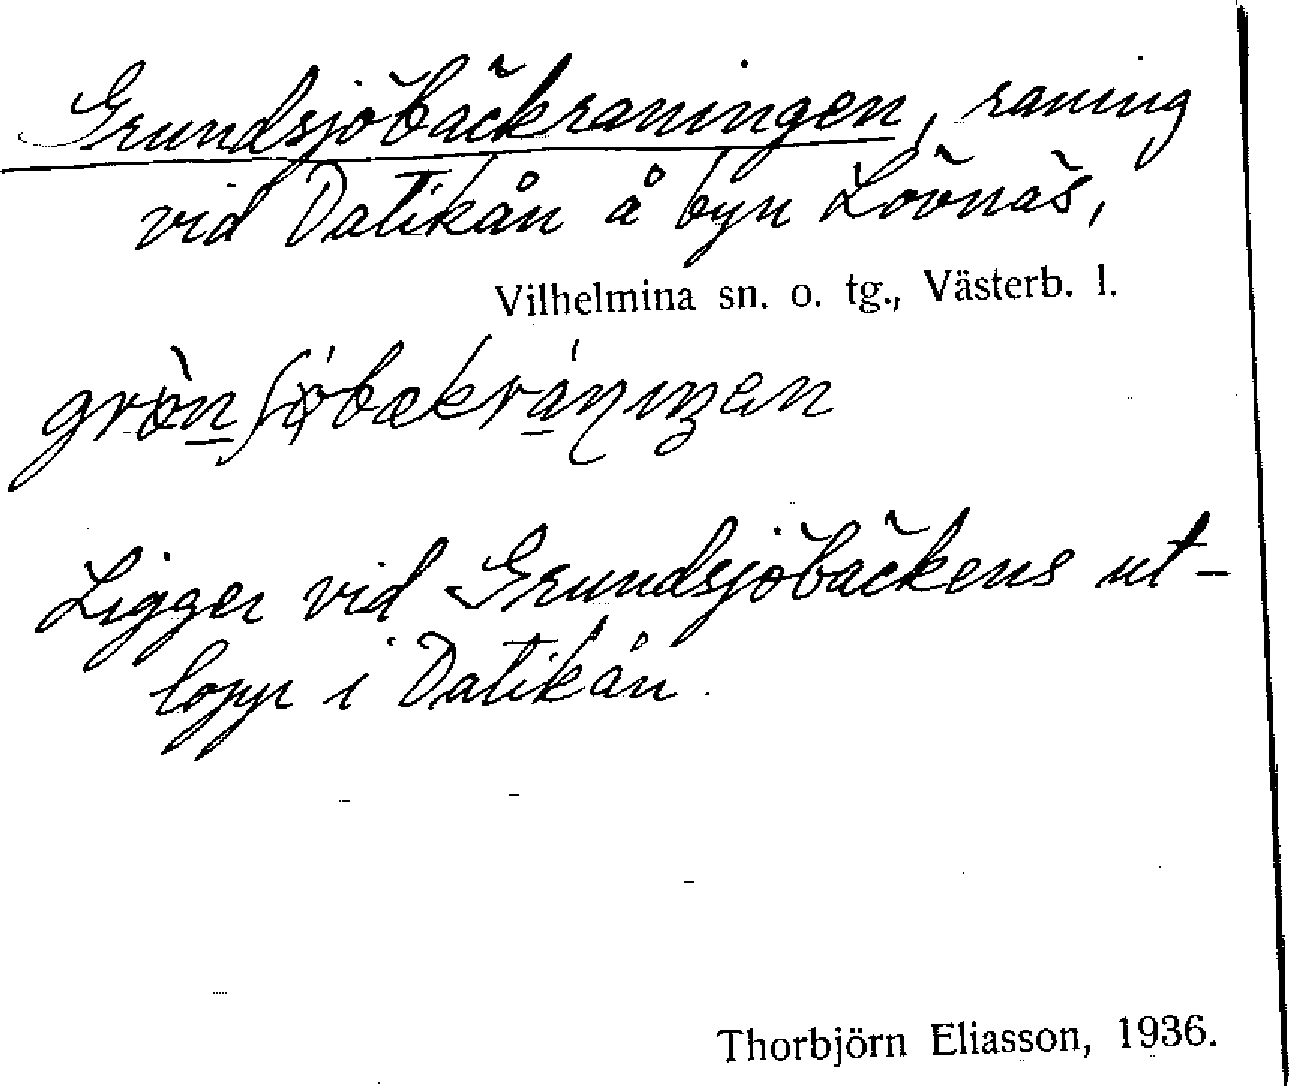 Grundsjöbäckraningen, raning
vid Datikån å byn Lövnäs,
Vilhelmina sn. o. tg., Västerb. l.
Ligger vid Grundsjöbäckens ut-
lopp i Datikån.
Thorbjörn Eliasson, 1936.